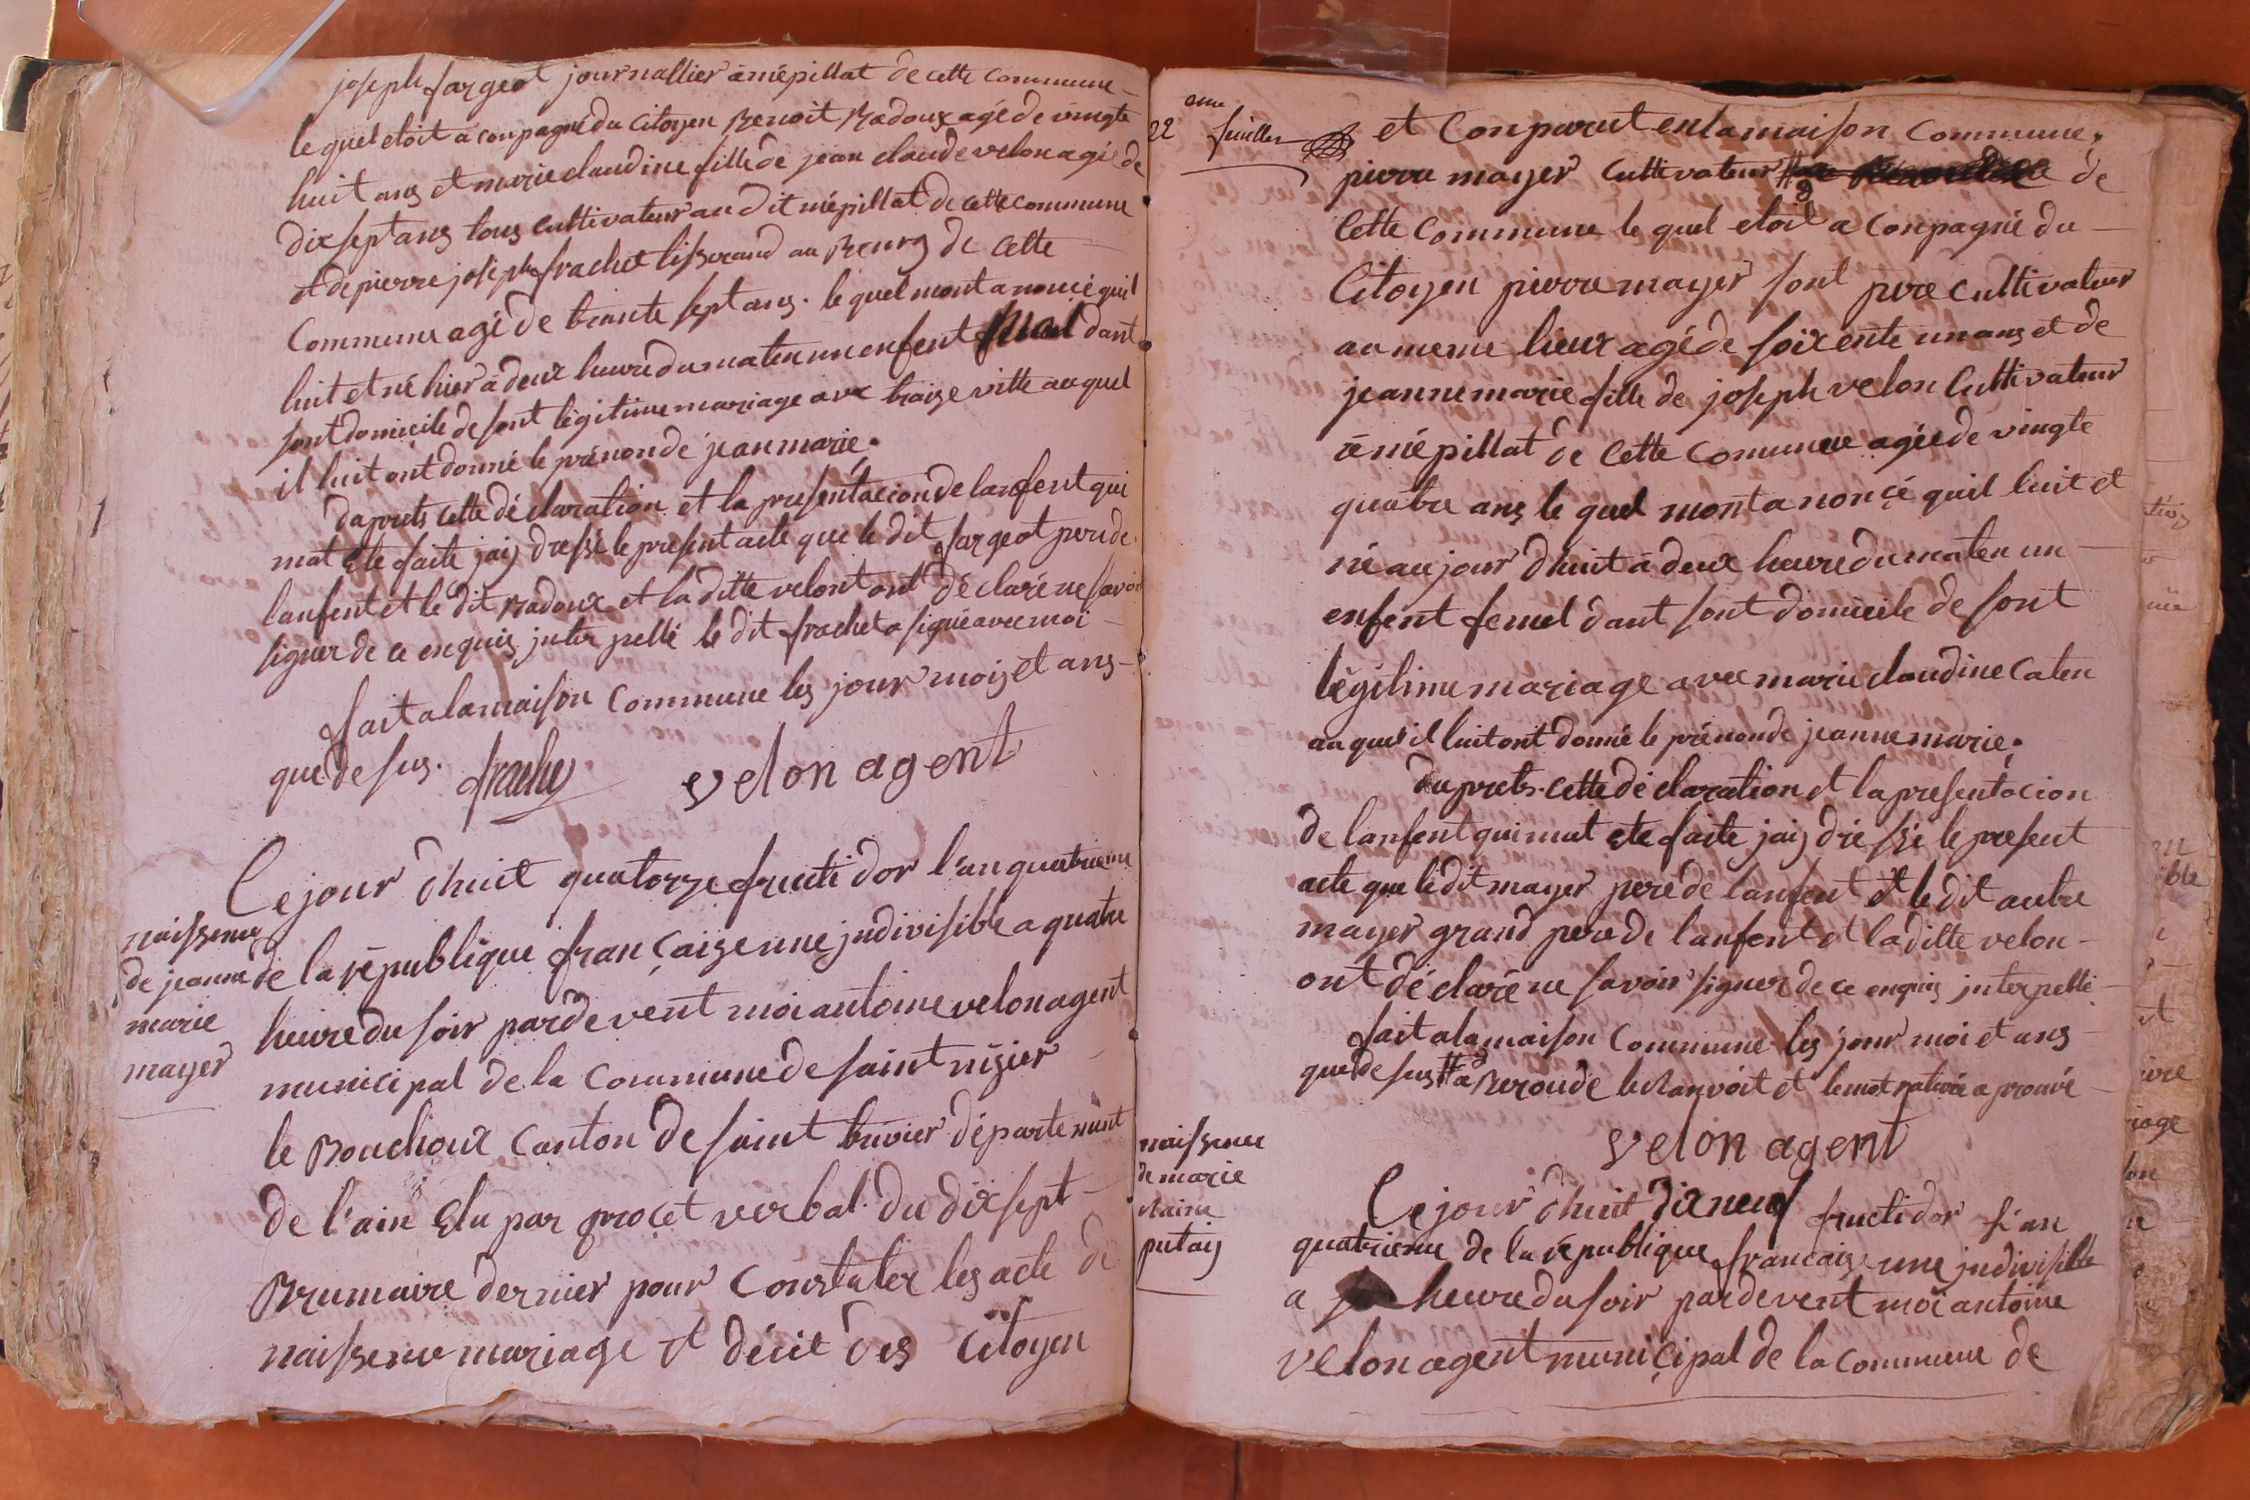 joseph fargeot journallier à mépillat de cette commune
le quel etoit a conpagné du citoyen Benoit Radoux agé de vingte
huit ans et marie claudine fille de jean claude velon agé de
dix sept ans tous cultivateur au dit mépillat de cette commune
et de pierre joseph frachet tisserand au Bourg de cette
Commune agé de trante sept ans. le quel mont anoncé quil
luit et né hier à deux heure du maten un enfent mal dant
sont domicile de sont légitime mariage avec braize vitte au quel
il luit ont donné le prénon de jean marie.
daprets cette déclaration et la presentacion de lanfent qui
mat ete faite jaij dressé le present acte que le dit fargeot pere de
lanfent et le dit Radoux et la ditte velont ont déclaré ne savoir
signer de ce enquis juter pellé le dit frachet a signé avec moi
fait a la maison Commune les jour mois et ans
que de sus. frachet velon agent
naissence
de jeanne
marie
mayer
Ce jour dhuit quatorze fruitidor l'an quatrieme
de la république française une jndivisible a quatre
heure du soir pardevent moi antoine velon agent
municipal de la Commune de saint nizier
le Bouchoux Canton de saint trivier département
de l'ain Elu par procet verbal du dix sept
Brumaire dernier pour Constater les acte de
naissence mariage et décit des Citoyen
22 feuillet
et Conparut en la maison Commune.
pierre mayer Cultivateur # de
Cette Commune le quel etoit a Conpagné du
Citoyen pierre mayer sont pere Cultivateur
au meme lieux agé de soixente un ans et de
jeanne marie fille de joseph velon Cultivateur
à mépillat de Cette Comune agée de vingte
quatre ans le quel mont a noncé quil luit et
né au jour dhuit à deux heure du maten un
enfent femel dant sont domicile de sont
légitime mariage avec marie claudine Caten
au quel il luit ont donné le prénon de jeanne marie.
daprets cette déclaration et la presentacion
de lanfent qui mat ete faite jaij dressé le present
acte que le dit mayer pere de lanfent et le dit autre
mayer grand pere de lanfent et la ditte velon
ont déclaré ne savoir signer de ce enquis jnterpellé
fait a la maison Commune les jour moi et ans
que de sus # a Beroude le Ranvoit et le mot rativée a prouvé
velon agent
naissence
de marie
claire
putaij
Ce jour dhuit dix neuf fructidor l'an
quatrieme de la république francaise une jndivisible
a heure du soir pardevent moi antoine
velon agent municipal de la commune de